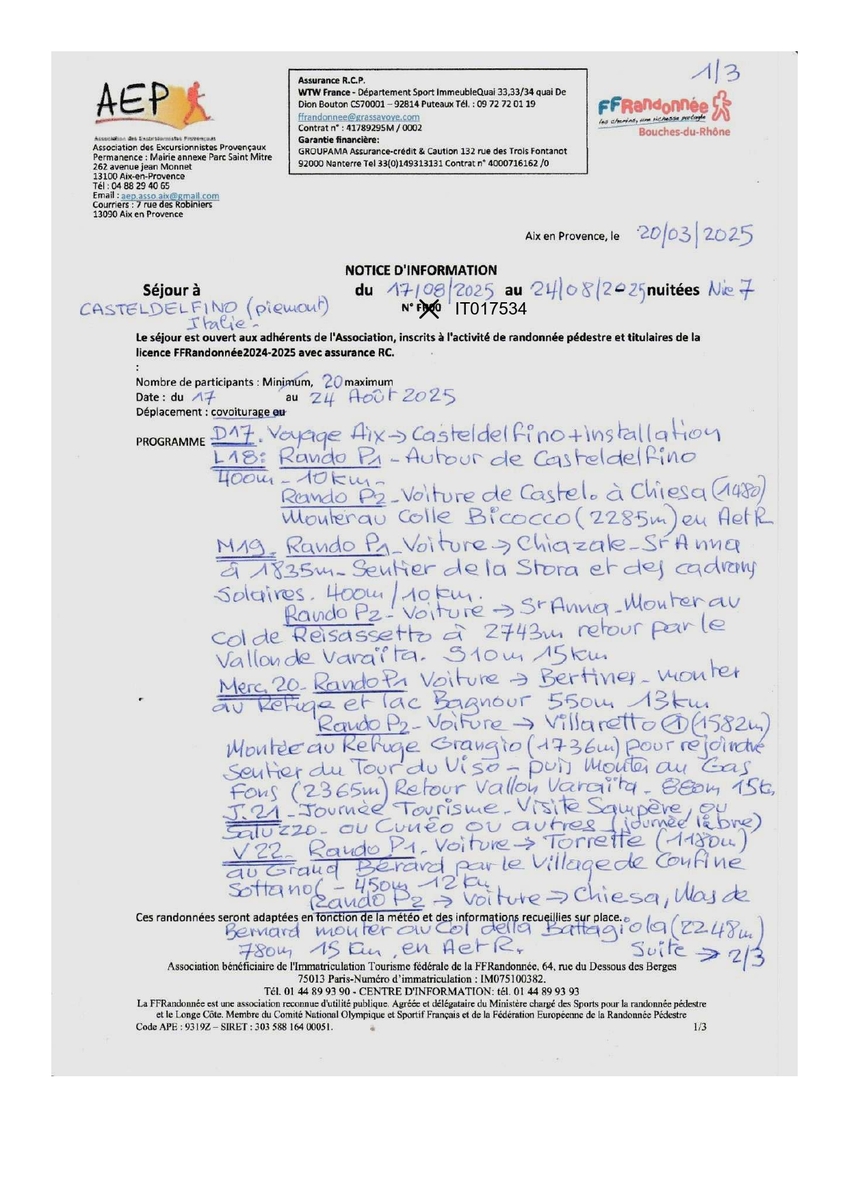 1/3
AEP
Association des Excursionnistes Provençaux
Association des Excursionnistes Provençaux
Permanence : Mairie annexe Parc Saint Mitre
262 avenue jean Monnet
13100 Aix-en-Provence
Tél : 04 88 29 40 65
Email : aep.asso.aix@gmail.com
Courriers : 7 rue des Robiniers
13090 Aix en Provence
Assurance R.C.P.
WTW France - Département Sport ImmeubleQuai 33,33/34 quai De
Dion Bouton CS70001 – 92814 Puteaux Tél. : 09 72 72 01 19
ffrandonnee@grassavoye.com
Contrat n° : 41789295M / 0002
Garantie financière:
GROUPAMA Assurance-crédit & Caution 132 rue des Trois Fontanot
92000 Nanterre Tel 33(0)149313131 Contrat n° 4000716162 /0
FFRandonnée
les chemins, une richesse partagée
Bouches-du-Rhône
Aix en Provence, le 20/03/2025
NOTICE D'INFORMATION
Séjour à du 17/08/2025 au 24/08/2025 nuitées Nie 7
CASTELDELFINO (piemont)
Italie -
N° IT017534
Le séjour est ouvert aux adhérents de l'Association, inscrits à l'activité de randonnée pédestre et titulaires de la
licence FFRandonnée2024-2025 avec assurance RC.
:
Nombre de participants : Minimum, 20 maximum
Date : du 17 au 24 Août 2025
Déplacement : covoiturage ou
PROGRAMME D17. Voyage Aix → Casteldelfino + installation
L18: Rando P1 - Autour de Casteldelfino
400m - 10km -
Rando P2 - Voiture de Castel. à Chiesa (1480)
Monter au Colle Bicocco (2285m) en A et R
M19. Rando P1 - Voiture → Chiazale - St Anna
à 1835m - Sentier de la Stora et des cadrans
Solaires. 400m / 10 km.
Rando P2 - Voiture → St Anna - Monter au
Col de Reisassetto à 2743m retour par le
Vallon de Varaïta. 910m 15km
Merc. 20 - Rando P1 Voiture → Bertines - monter
au Refuge et lac Bagnour 550m 13km
Rando P2 - Voiture → Villaretto (1582m)
Montée au Refuge Grangio (1736m) pour rejoindre
Sentier du Tour du Viso - puis Monter au Gas
Fons (2365m) Retour Vallon Varaïta - 880m 15k
J. 21 - Journée Tourisme - Visite Sampère, ou
Saluzzo - ou Cunéo ou autres (journée libre)
V 22 - Rando P1 - Voiture → Torrette (1180m)
au Grand Bérard par le Village de Confine
Sottano ( - 450m - 12 km
Rando P2 → Voiture → Chiesa, Mas de
Ces randonnées seront adaptées en fonction de la météo et des informations recueillies sur place.
Bernard monter au Col della Battagiola (2248m)
780m 15 Km, en A et R. Suite → 2/3
Association bénéficiaire de l'Immatriculation Tourisme fédérale de la FFRandonnée, 64, rue du Dessous des Berges
75013 Paris-Numéro d'immatriculation : IM075100382.
Tél. 01 44 89 93 90 - CENTRE D'INFORMATION: tél. 01 44 89 93 93
La FFRandonnée est une association reconnue d'utilité publique. Agréée et délégataire du Ministère chargé des Sports pour la randonnée pédestre
et le Longe Côte. Membre du Comité National Olympique et Sportif Français et de la Fédération Européenne de la Randonnée Pédestre
Code APE : 9319Z – SIRET : 303 588 164 00051. 1/3